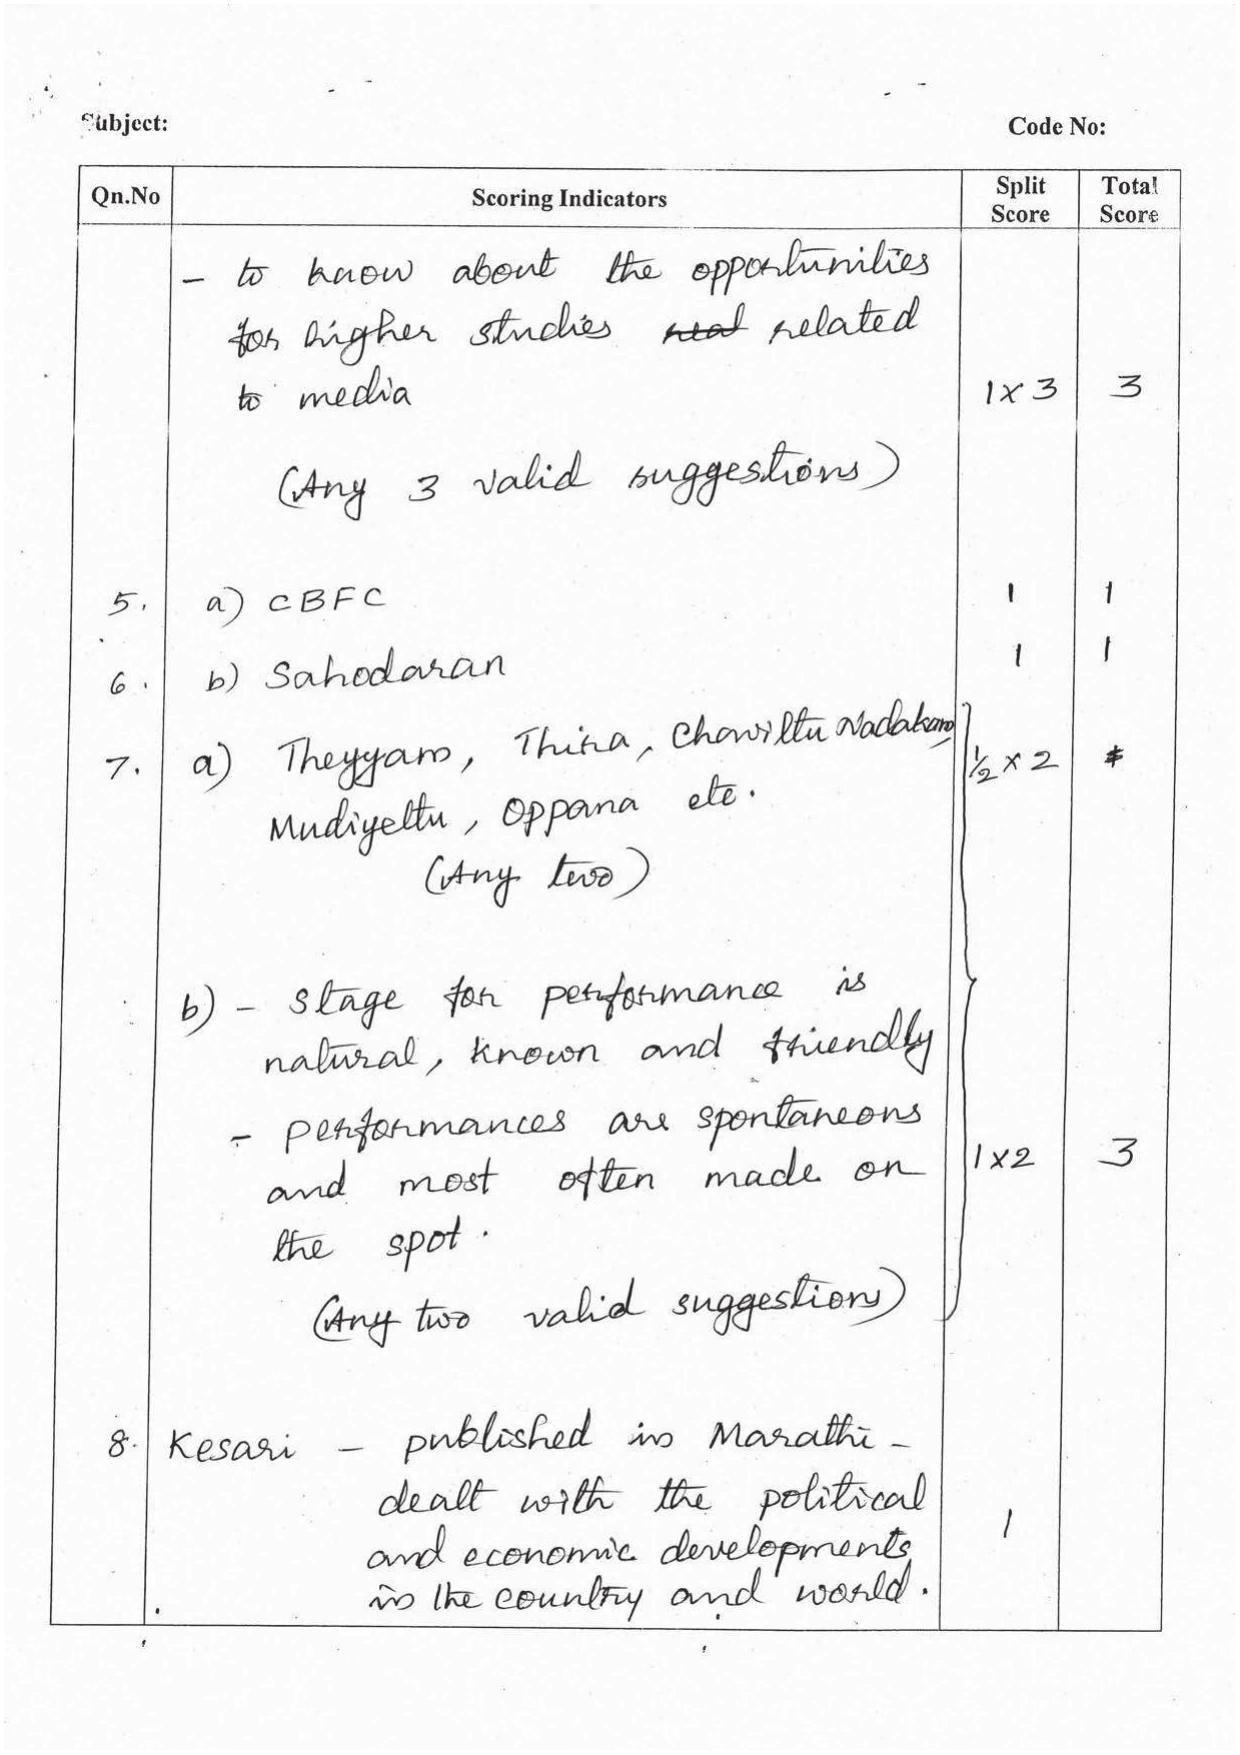 Subject:
Code No:
Qn.No Scoring Indicators Split Score Total Score
- to know about the opportunities
for higher studies related
to media 1 x 3 3
(Any 3 valid suggestions)
5. a) CBFC 1 1
6. b) Sahodaran 1 1
7. a) Theyyam, Thira, Chavittu Nadakam, ½ x 2
Mudiyettu, Oppana etc.
(Any two)
b) - stage for performance is
natural, known and friendly
- performances are spontaneous
and most often made on 1 x 2 3
the spot.
(Any two valid suggestions)
8. Kesari - published in Marathi -
dealt with the political
and economic developments 1
in the country and world.